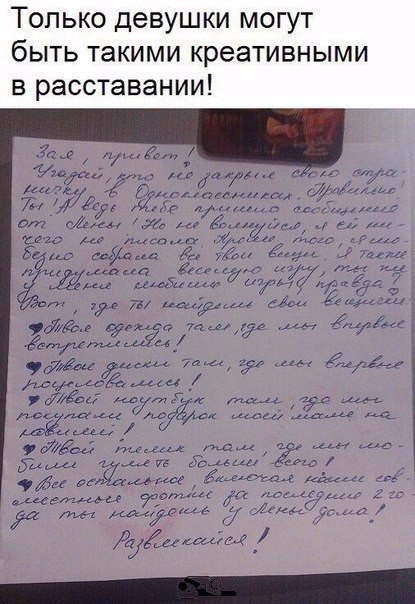 Только девушки могут
быть такими креативными
в расставании!
Зая, привет!
Угадай, кто не закрыл свою стра-
ничку в Одноклассниках. Правильно!
Ты! А ведь тебе пришло сообщение
от Лены! Но не волнуйся, я ей ни-
чего не писала. Кроме того, я лю-
безно собрала все твои вещи. Я также
придумала веселую игру, ты же
у меня любишь игры, правда?
Вот, где ты найдешь свои вещички
Твоя одежда там, где мы впервые
встретились!
Твои диски там, где мы впервые
поцеловались!
Твой ноутбук там, где мы
покупали подарок моей маме на
Твой телик там, где мы лю-
били гулять больше всего!
Все остальное, включая наши сов-
местные фотки за последние 2 го-
да ты найдешь у Лены дома!
Развлекайся!